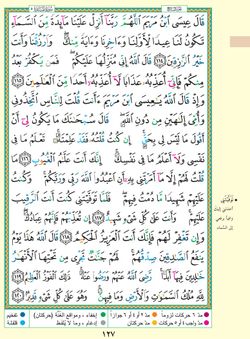 قَالَ عِيسَى ٱبْنُ مَرْيَمَ ٱللَّهُمَّ رَبَّنَآ أَنزِلْ عَلَيْنَا مَآئِدَةً مِّنَ ٱلسَّمَآءِ
تَكُونُ لَنَا عِيدًا لِّأَوَّلِنَا وَءَاخِرِنَا وَءَايَةً مِّنكَ وَٱرْزُقْنَا وَأَنتَ
خَيْرُ ٱلرَّٰزِقِينَ ١١٤ قَالَ ٱللَّهُ إِنِّى مُنَزِّلُهَا عَلَيْكُمْ فَمَن يَكْفُرْ بَعْدُ
مِنكُمْ فَإِنِّىٓ أُعَذِّبُهُۥ عَذَابًا لَّآ أُعَذِّبُهُۥٓ أَحَدًا مِّنَ ٱلْعَٰلَمِينَ ١١٥
وَإِذْ قَالَ ٱللَّهُ يَٰعِيسَى ٱبْنَ مَرْيَمَ ءَأَنتَ قُلْتَ لِلنَّاسِ ٱتَّخِذُونِى
وَأُمِّىَ إِلَٰهَيْنِ مِن دُونِ ٱللَّهِ قَالَ سُبْحَٰنَكَ مَا يَكُونُ لِىٓ أَنْ
أَقُولَ مَا لَيْسَ لِى بِحَقٍّ إِن كُنتُ قُلْتُهُۥ فَقَدْ عَلِمْتَهُۥ تَعْلَمُ مَا فِى
نَفْسِى وَلَآ أَعْلَمُ مَا فِى نَفْسِكَ إِنَّكَ أَنتَ عَلَّٰمُ ٱلْغُيُوبِ ١١٦ مَا
قُلْتُ لَهُمْ إِلَّا مَآ أَمَرْتَنِى بِهِۦٓ أَنِ ٱعْبُدُوا۟ ٱللَّهَ رَبِّى وَرَبَّكُمْ وَكُنتُ
عَلَيْهِمْ شَهِيدًا مَّا دُمْتُ فِيهِمْ فَلَمَّا تَوَفَّيْتَنِى كُنتَ أَنتَ ٱلرَّقِيبَ
عَلَيْهِمْ وَأَنتَ عَلَىٰ كُلِّ شَىْءٍ شَهِيدٌ ١١٧ إِن تُعَذِّبْهُمْ فَإِنَّهُمْ عِبَادُكَ
وَإِن تَغْفِرْ لَهُمْ فَإِنَّكَ أَنتَ ٱلْعَزِيزُ ٱلْحَكِيمُ ١١٨ قَالَ ٱللَّهُ هَٰذَا يَوْمُ
يَنفَعُ ٱلصَّٰدِقِينَ صِدْقُهُمْ لَهُمْ جَنَّٰتٌ تَجْرِى مِن تَحْتِهَا ٱلْأَنْهَٰرُ
خَٰلِدِينَ فِيهَآ أَبَدًا رَّضِىَ ٱللَّهُ عَنْهُمْ وَرَضُوا۟ عَنْهُ ذَٰلِكَ ٱلْفَوْزُ ٱلْعَظِيمُ ١١٩
لِلَّهِ مُلْكُ ٱلسَّمَٰوَٰتِ وَٱلْأَرْضِ وَمَا فِيهِنَّ وَهُوَ عَلَىٰ كُلِّ شَىْءٍ قَدِيرٌۢ ١٢٠
١٢٧